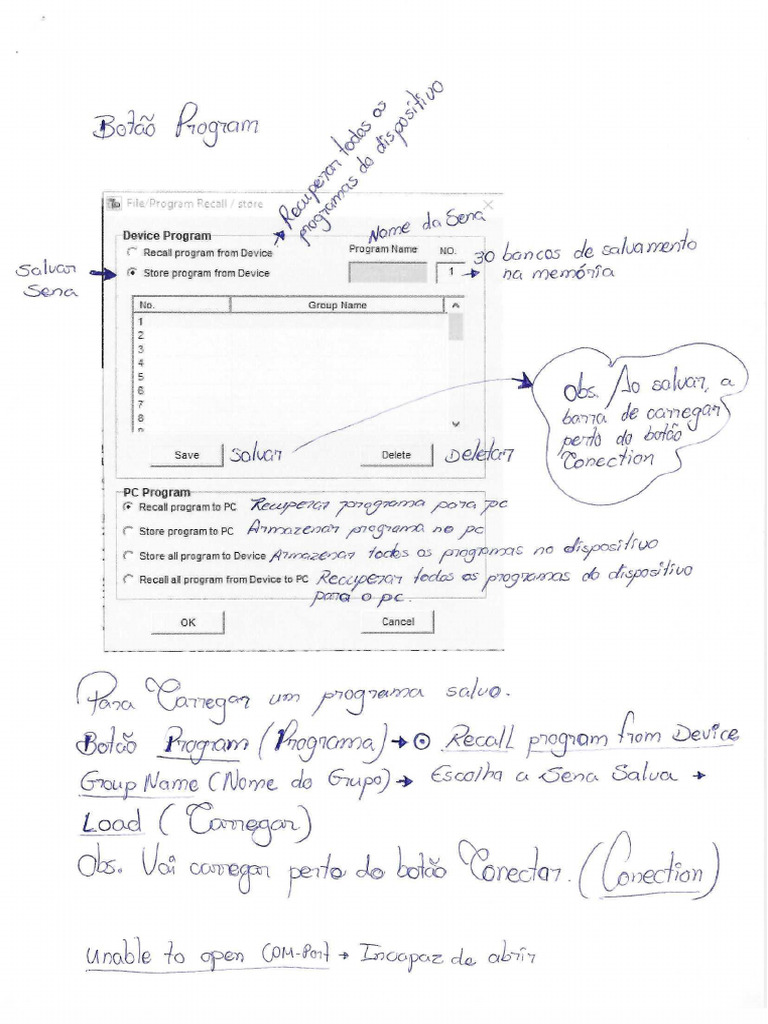 Botão Program
Recuperar todos os
programas do dispositivo
File/Program Recall / store
Nome da Sena
Device Program
Recall program from Device
Program Name
NO.
30 bancos de salvamento
na memória
Salvar
Sena
Store program from Device
1
No.
Group Name
1
2
3
4
5
6
7
8
9
Obs. Ao salvar, a
barra de carregar
perto do botão
Conection
Save
Salvar
Delete
Deletar
PC Program
Recall program to PC Recuperar programa para pc
Store program to PC Armazenar programa no pc
Store all program to Device Armazenar todos os programas no dispositivo
Recall all program from Device to PC Recuperar todos os programas do dispositivo
para o pc.
OK
Cancel
Para Carregar um programa salvo.
Botão Program (Programa) → ⊙ Recall program from Device
Group Name (Nome do Grupo) → Escolha a Sena Salva →
Load (Carregar)
Obs. Vai carregar perto do botão Conectar. (Conection)
Unable to open COM-Port → Incapaz de abrir